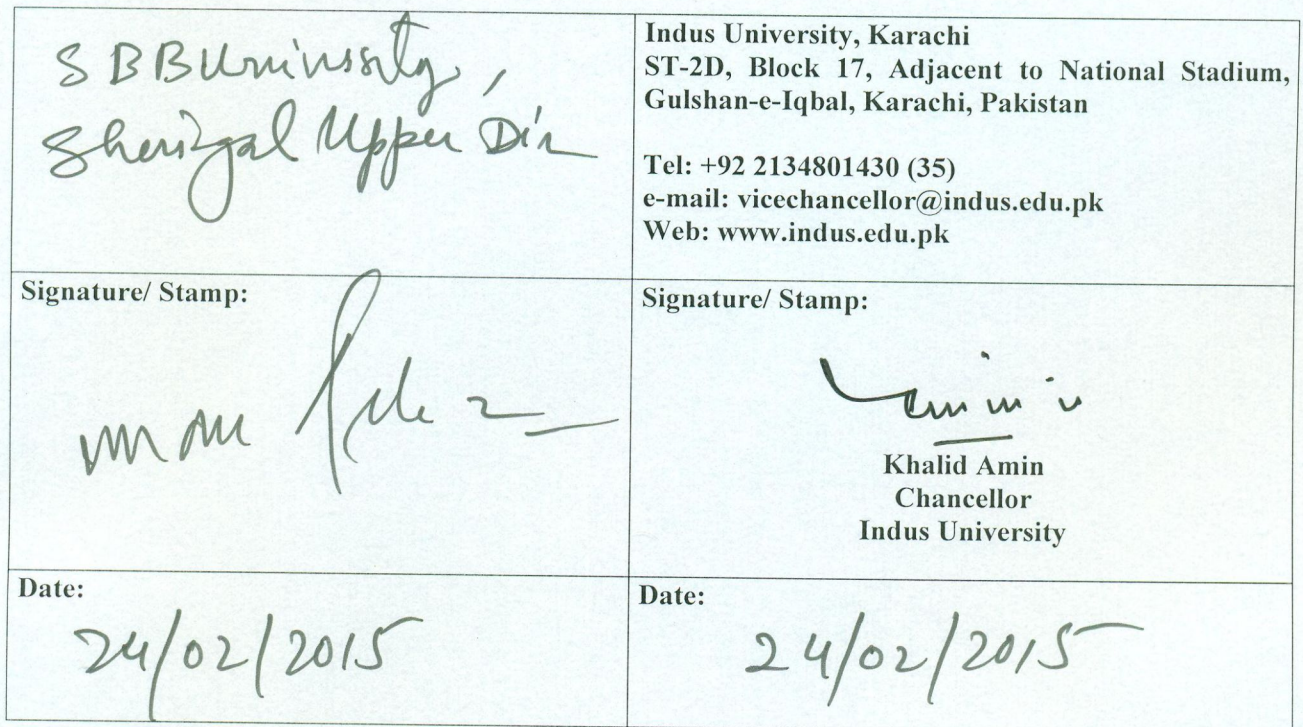 S B B University,
Sheringal Upper Dir
Indus University, Karachi
ST-2D, Block 17, Adjacent to National Stadium,
Gulshan-e-Iqbal, Karachi, Pakistan
Tel: +92 2134801430 (35)
e-mail: vicechancellor@indus.edu.pk
Web: www.indus.edu.pk
Signature/ Stamp:
Signature/ Stamp:
Khalid Amin
Chancellor
Indus University
Date:
24/02/2015
Date:
24/02/2015